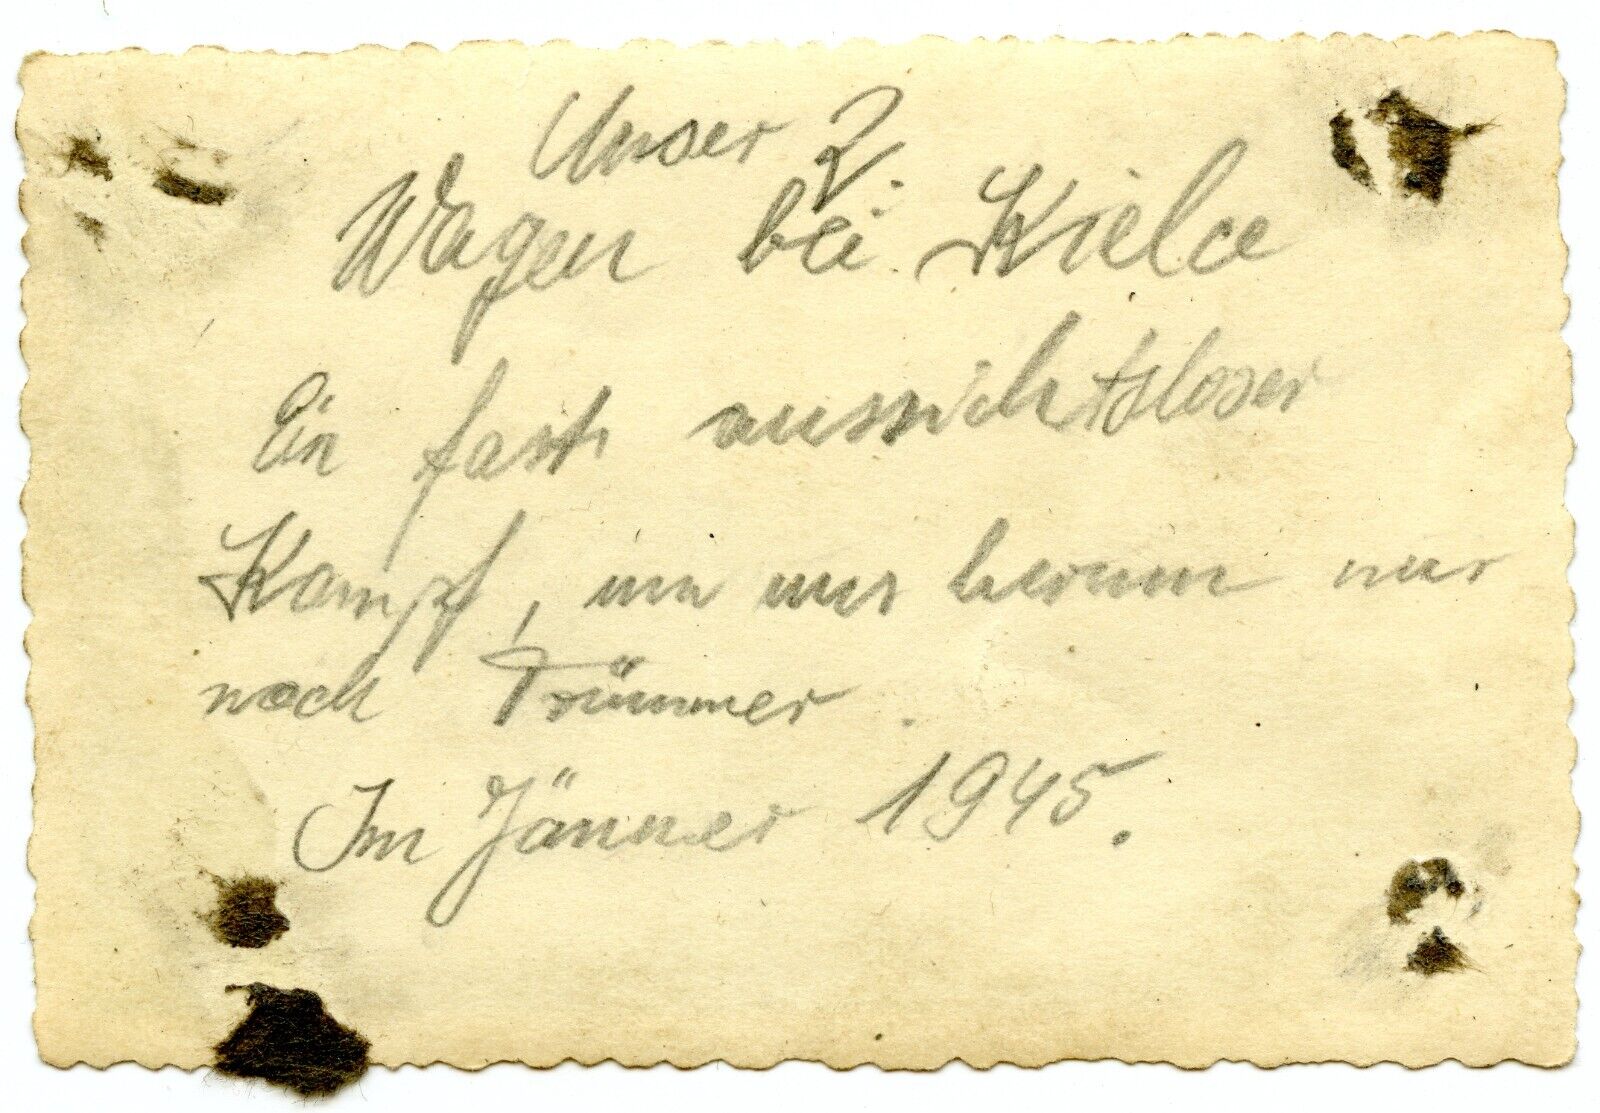 Unser 2.
Wagen bei Kielce
Ein fast aussichtsloser
Kampf, um uns herum nur
noch Trümmer.
Im Jänner 1945.